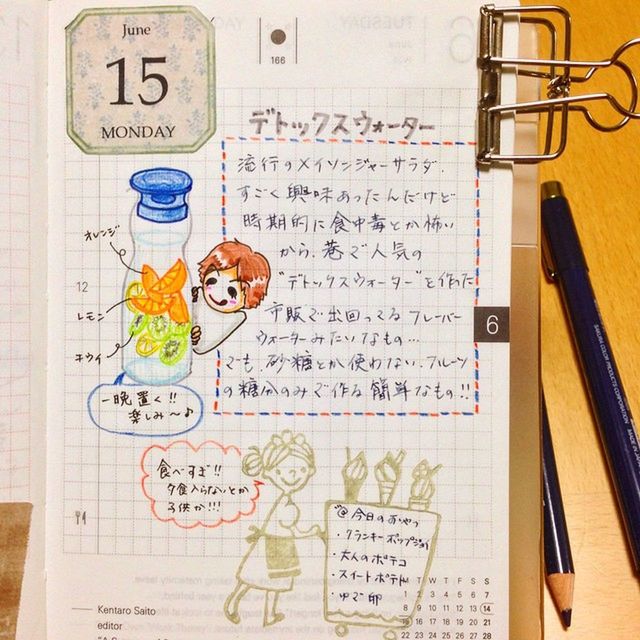 June
15
MONDAY
166
デトックスウォーター
流行のメイソンジャーサラダ.
すごく興味あったんだけど
時期的に食中毒とか怖い
から、巷で人気の
"デトックスウォーター"を作った
市販で出回ってるフレーバー
ウォーターみたいなもの…
でも、砂糖とか使わない、フルーツ
の糖分のみで作る簡単なもの!!
オレンジ
レモン
キウイ
12
6
一晩置く!!
楽しみ〜♪
食べすぎ!!
夕食入らないとか
子供か!!!
今日のおやつ
・クランキーポップジョイ
・大人のポテコ
・スイートポテト
・ゆで卵
Kentaro Saito
editor
M T W T F S S
1 2 3 4 5 6 7
8 9 10 11 12 13 14
15 16 17 18 19 20 21
SAKURA COLOR PRODUCTS CORPORATION